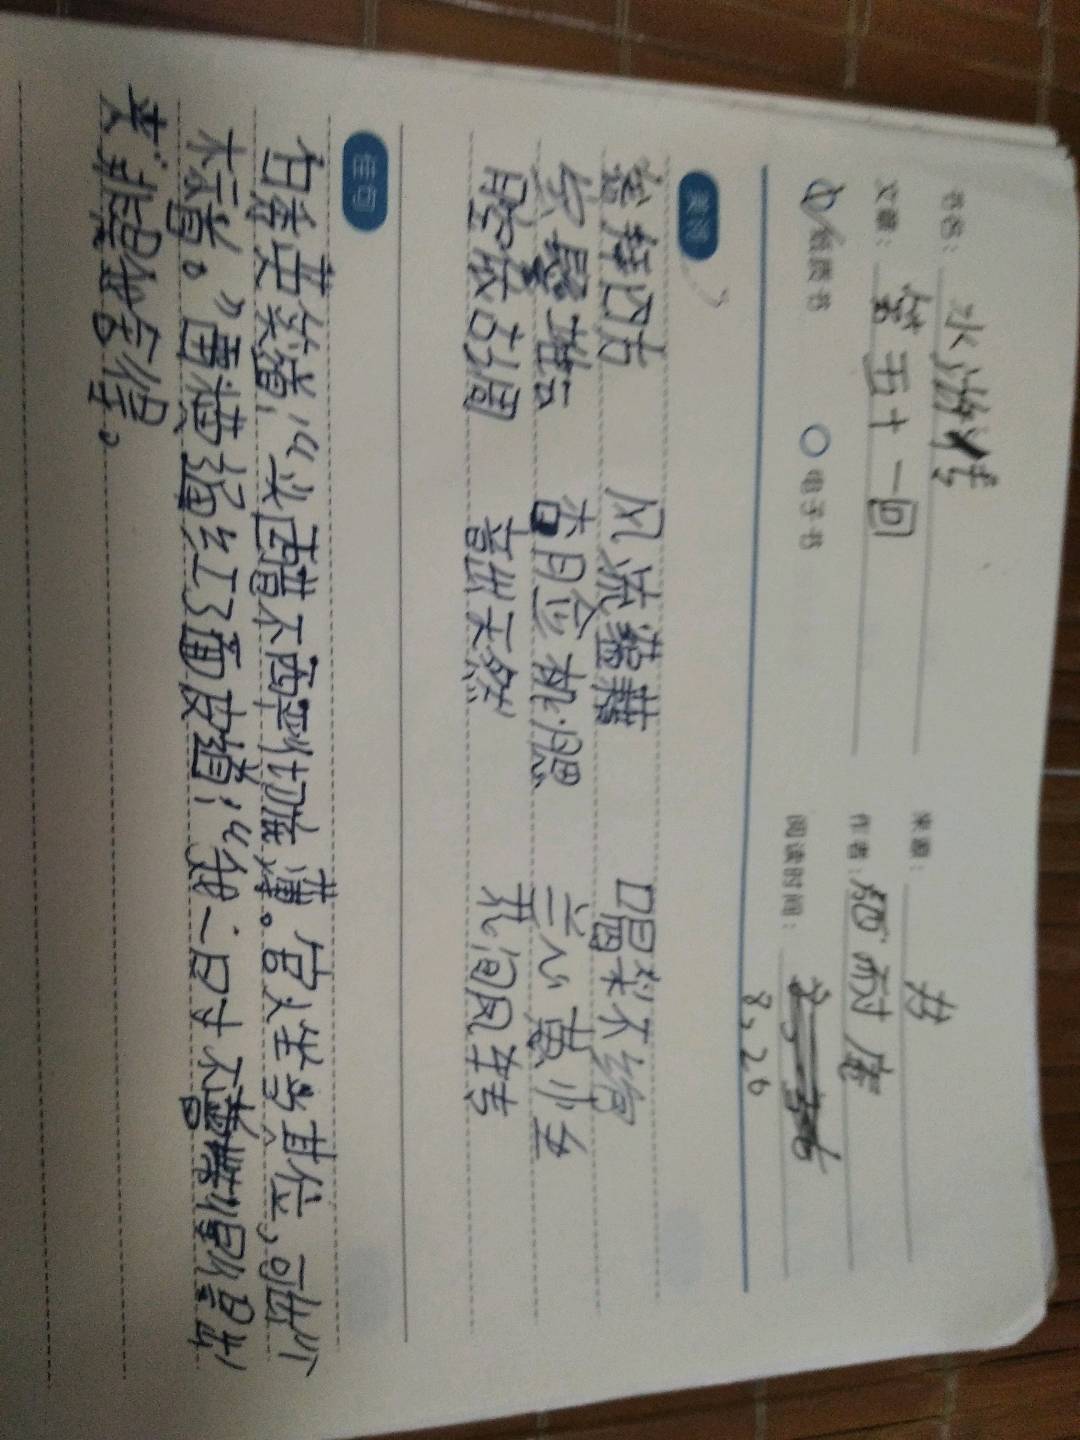 书名：水浒传
来源：书
文章：第五十一回
作者：施耐庵
纸质书 电子书
阅读时间：
8,26
美词
参拜四方 风流蕴藉 喝彩不绝
宝髻堆云 杏脸桃腮 兰心蕙性
腔依古调 音出天然 花间风转
佳句
白秀英笑道：“头醋不酽彻底薄。官人坐当其位，可出个
标首。”雷横通红了面皮道：“我一时不曾带得出
来，非是舍得。